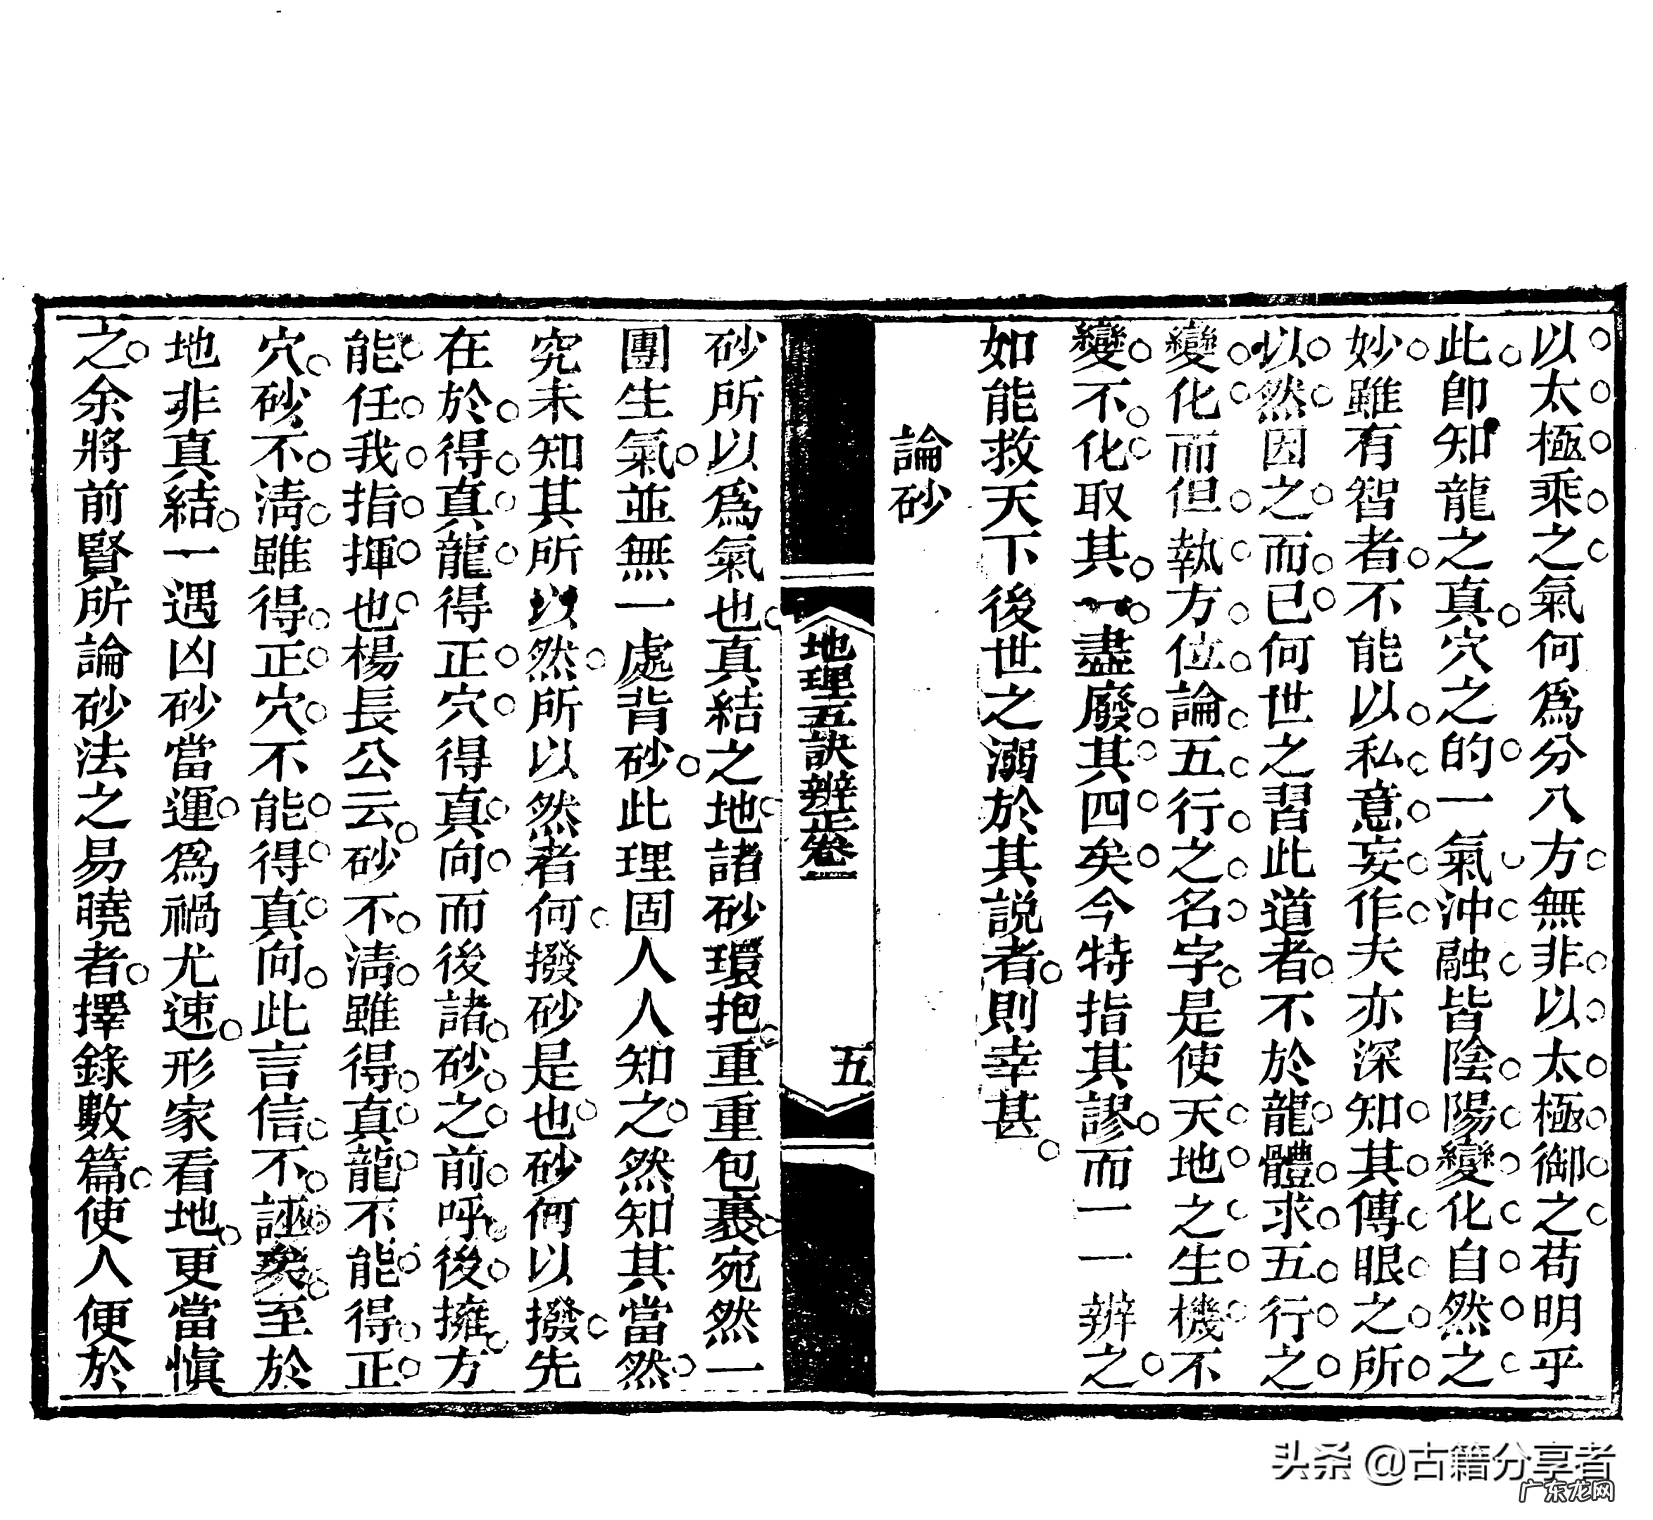 以太極乘之氣何爲分八方無非以太極御之苟明乎
此卽知龍之真穴之的一氣沖融皆陰陽變化自然之
妙雖有智者不能以私意妄作夫亦深知其傳眼之所
以然因之而已何世之習此道者不於龍體求五行之
變化而但執方位論五行之名字是使天地之生機不
變不化取其一盡廢其四矣今特指其謬而一一辨之
如能救天下後世之溺於其説者則幸甚
論砂
地理五訣辨正卷一
五
砂所以爲氣也真結之地諸砂環抱重重包裹宛然一
團生氣並無一處背砂此理固人人知之然知其當然
究未知其所以然所以然者何撥砂是也砂何以撥先
在於得真龍得正穴得真向而後諸砂之前呼後擁方
能任我指揮也楊長公云砂不清雖得真龍不能得正
穴砂不清雖得正穴不能得真向此言信不誣矣至於
地非真結一遇凶砂當運爲禍尤速形家看地更當慎
之余將前賢所論砂法之易曉者擇錄數篇使人便於
头条 @古籍分享者
广东龙网